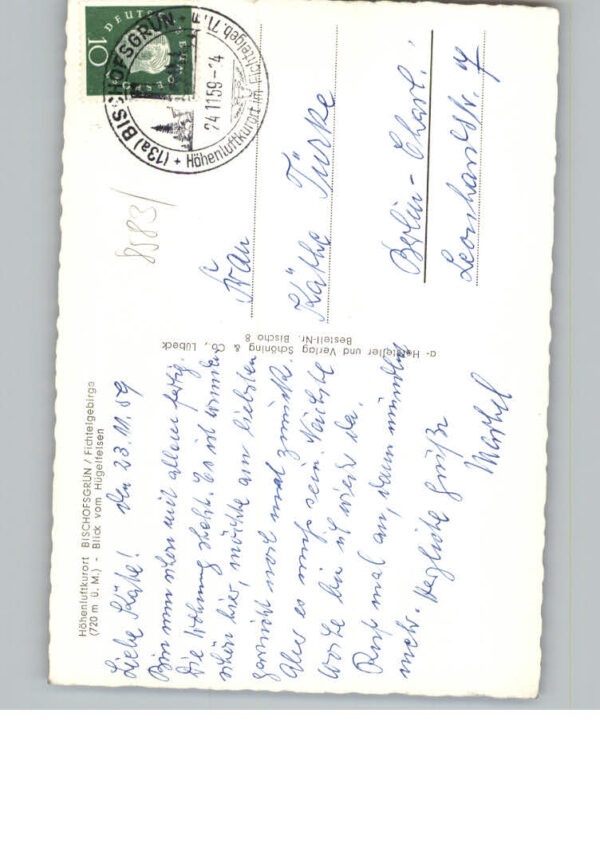 Höhenluftkurort BISCHOFSGRÜN / Fichtelgebirge
(720 m ü. M.) - Blick vom Hügelfelsen
Liebe Käthe! den 23.11.59
Bin nun schon mit allem fertig.
Die Wohnung steht. Es ist wunder
schön hier, möchte am liebsten
garnicht noch mal zurück.
Aber es muß sein. Nächste
Woche bin ich wieder da.
Ruf mal an, dann mündlich
mehr. Herzliche Grüße
a- Hersteller und Verlag Schöning & Co., Lübeck
Bestell-Nr. Bischo 8
DEUTSCHE BUNDESPOST
10
(13a) BISCHOFSGRÜN
24.11.59-14
+ Höhenluftkurort im Fichtelgeb. 71
8583/
Frau
Käthe Türke
Berlin-Charl.
Leonhardtstr. 7